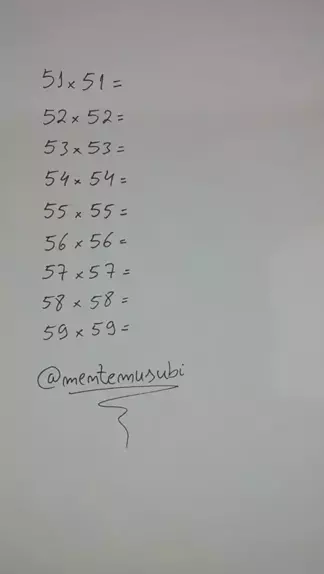 51 × 51 =
52 × 52 =
53 × 53 =
54 × 54 =
55 × 55 =
56 × 56 =
57 × 57 =
58 × 58 =
59 × 59 =
@mentemusubi